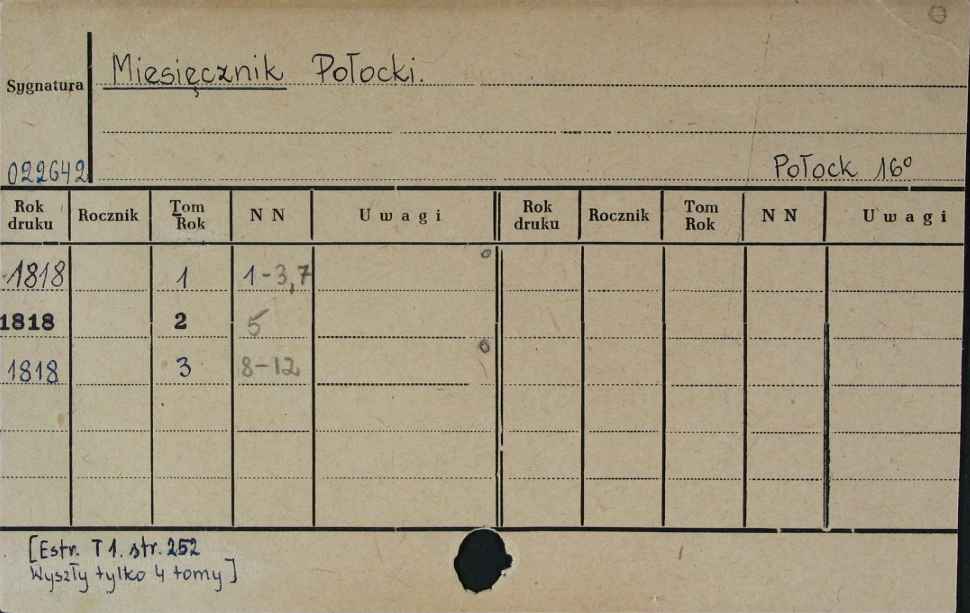 Miesięcznik Połocki.
Sygnatura
022642
Połock 16°
Rok druku Rocznik Tom Rok N N Uwagi Rok druku Rocznik Tom Rok N N Uwagi
1818 1 1-3,7
1818 2 5
1818 3 8-12
[Estr. T 1. str. 252
Wyszły tylko 4 tomy]